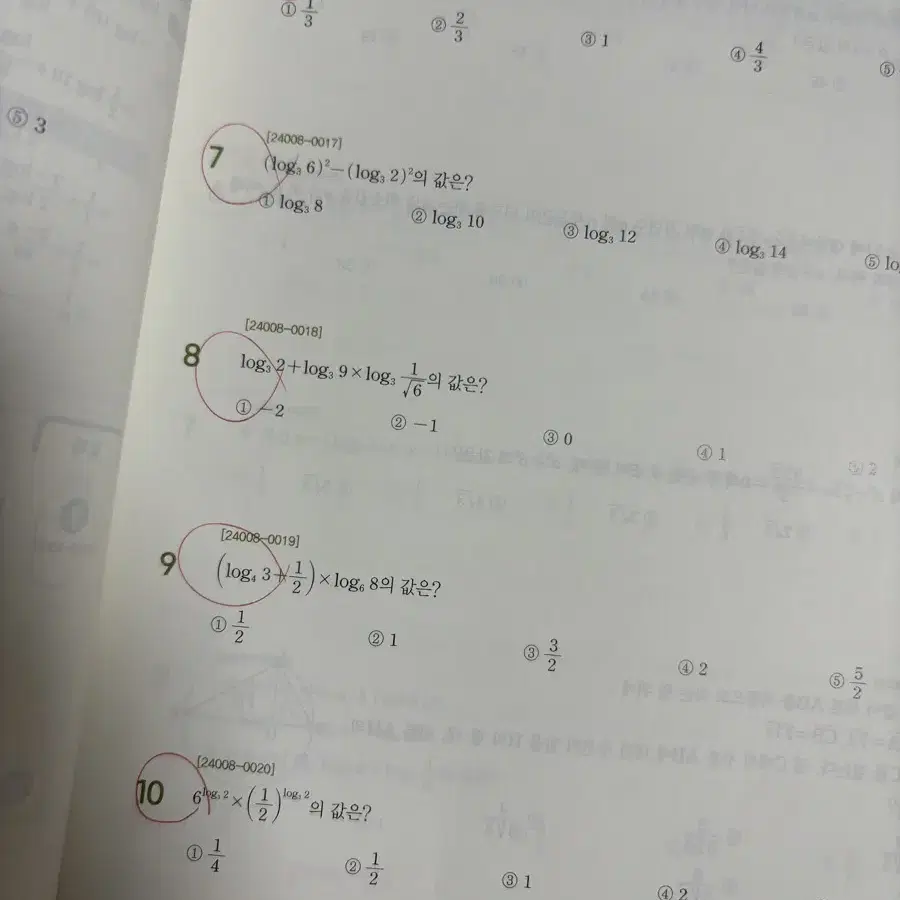 ① 1/3 ② 2/3 ③ 1 ④ 4/3 ⑤
⑤ 3
[24008-0017]
7 (log₃ 6)²-(log₃ 2)²의 값은?
① log₃ 8 ② log₃ 10 ③ log₃ 12 ④ log₃ 14 ⑤ lo
[24008-0018]
8 log₃ 2+log₃ 9×log₃ 1/√6의 값은?
① -2 ② -1 ③ 0 ④ 1 ⑤ 2
[24008-0019]
9 (log₄ 3+1/2)×log₆ 8의 값은?
① 1/2 ② 1 ③ 3/2 ④ 2 ⑤ 5/2
[24008-0020]
10 6^log₃ 2×(1/2)^log₃ 2의 값은?
① 1/4 ② 1/2 ③ 1 ④ 2